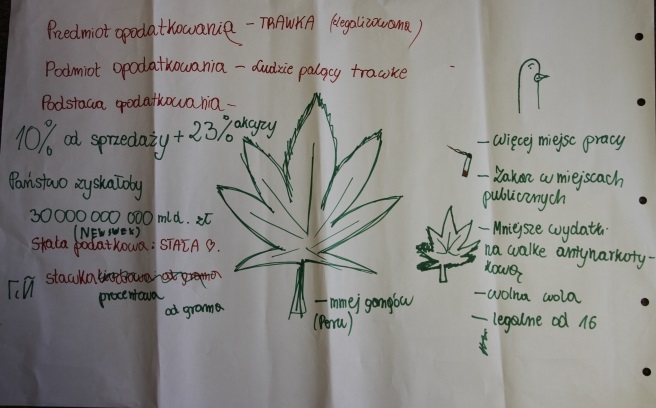 Przedmiot opodatkowania - TRAWKA (zlegalizowana)
Podmiot opodatkowania - Ludzie palący trawkę
Podstawa opodatkowania -
10% od sprzedaży + 23% akcyzy
Państwo zyskałoby
30 000 000 000 mld. zł
(NEWSWEK)
Skala podatkowa: STAŁA
stawka
procentowa
od grama
- mniej gangów
(Peru)
- więcej miejsc pracy
- Zakaz w miejscach
publicznych
- Mniejsze wydatk.
na walkę antynarkoty-
kową
- wolna wola
- legalne od 16